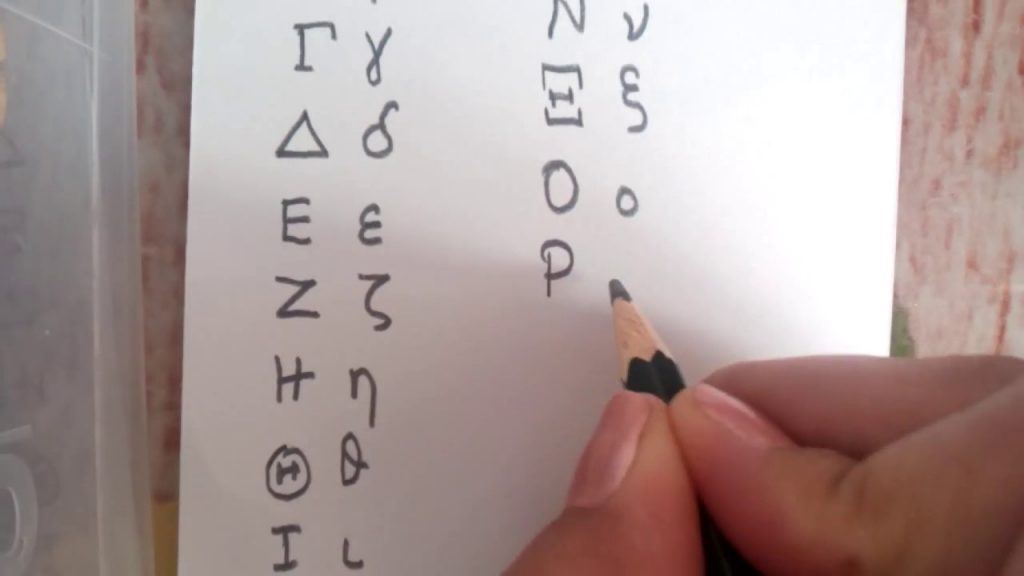 Γ γ
Δ δ
Ε ε
Ζ ζ
Η η
Θ θ
Ι ι
Ν ν
Ξ ξ
Ο ο
Ρ